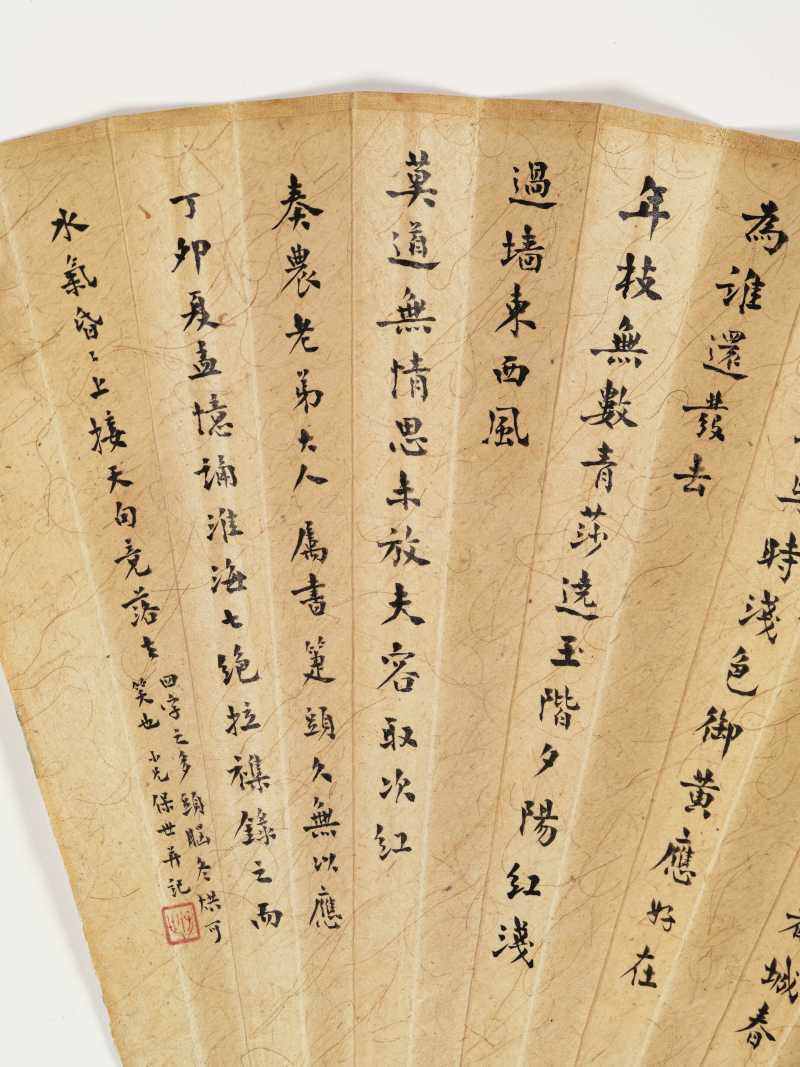 城春
時淺色御黄應好在
為誰還發去
年枝無數青莎遶玉階夕陽紅淺
過墙東西風
莫道無情思未放夫容取次紅
奏農老弟大人屬書箑頭久無以應
丁卯夏孟憶誦淮海七絶拉襍錄之而
水氣昏〻上接天句竟落去
四字之多頭腦冬烘可
笑也 小兄保世并記